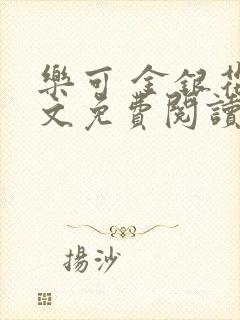 樂可 金銀花
文免費閱讀
揚沙